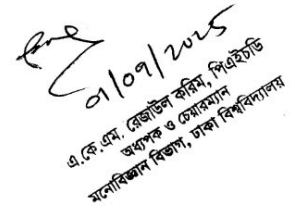 01/09/2025
এ.কে.এম. রেজাউল করিম, পিএইচডি
অধ্যাপক ও চেয়ারম্যান
মনোবিজ্ঞান বিভাগ, ঢাকা বিশ্ববিদ্যালয়